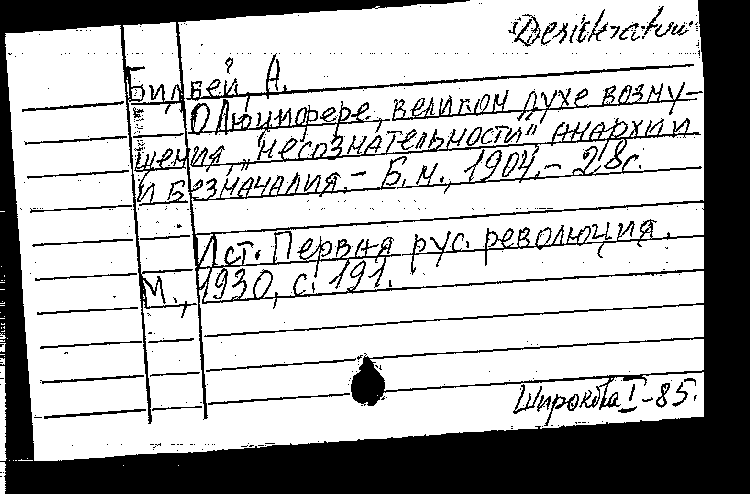 Desideratum
Бидбей, А.
О Люцифере, великом духе возму-
щения, „несознательности" анархии
и безначалия. - Б.м., 1904. - 28с.
Ист. Первая рус. революция.
М., 1930, с. 191.
Широкова I-85.